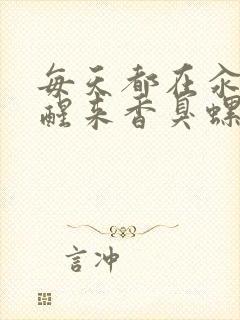 每天都在
醒来香臭螺
言冲